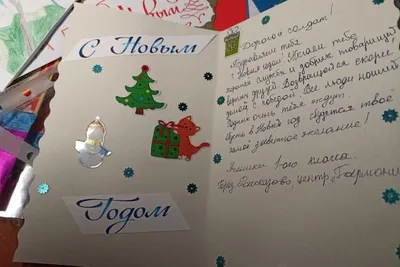 С Новым
Годом
Дорогой солдат!
Поздравляем тебя
с Новым годом! Желаем тебе
хорошей службы и добрых товарищей,
верных друзей. Возвращайся скорее
домой с победой. Все люди нашей
Родины очень тебя ждут.
Пусть в Новый год сбудется твоё
самое заветное желание!
Ученики 1-ого класса.
Город Рассказово центр "Гармония